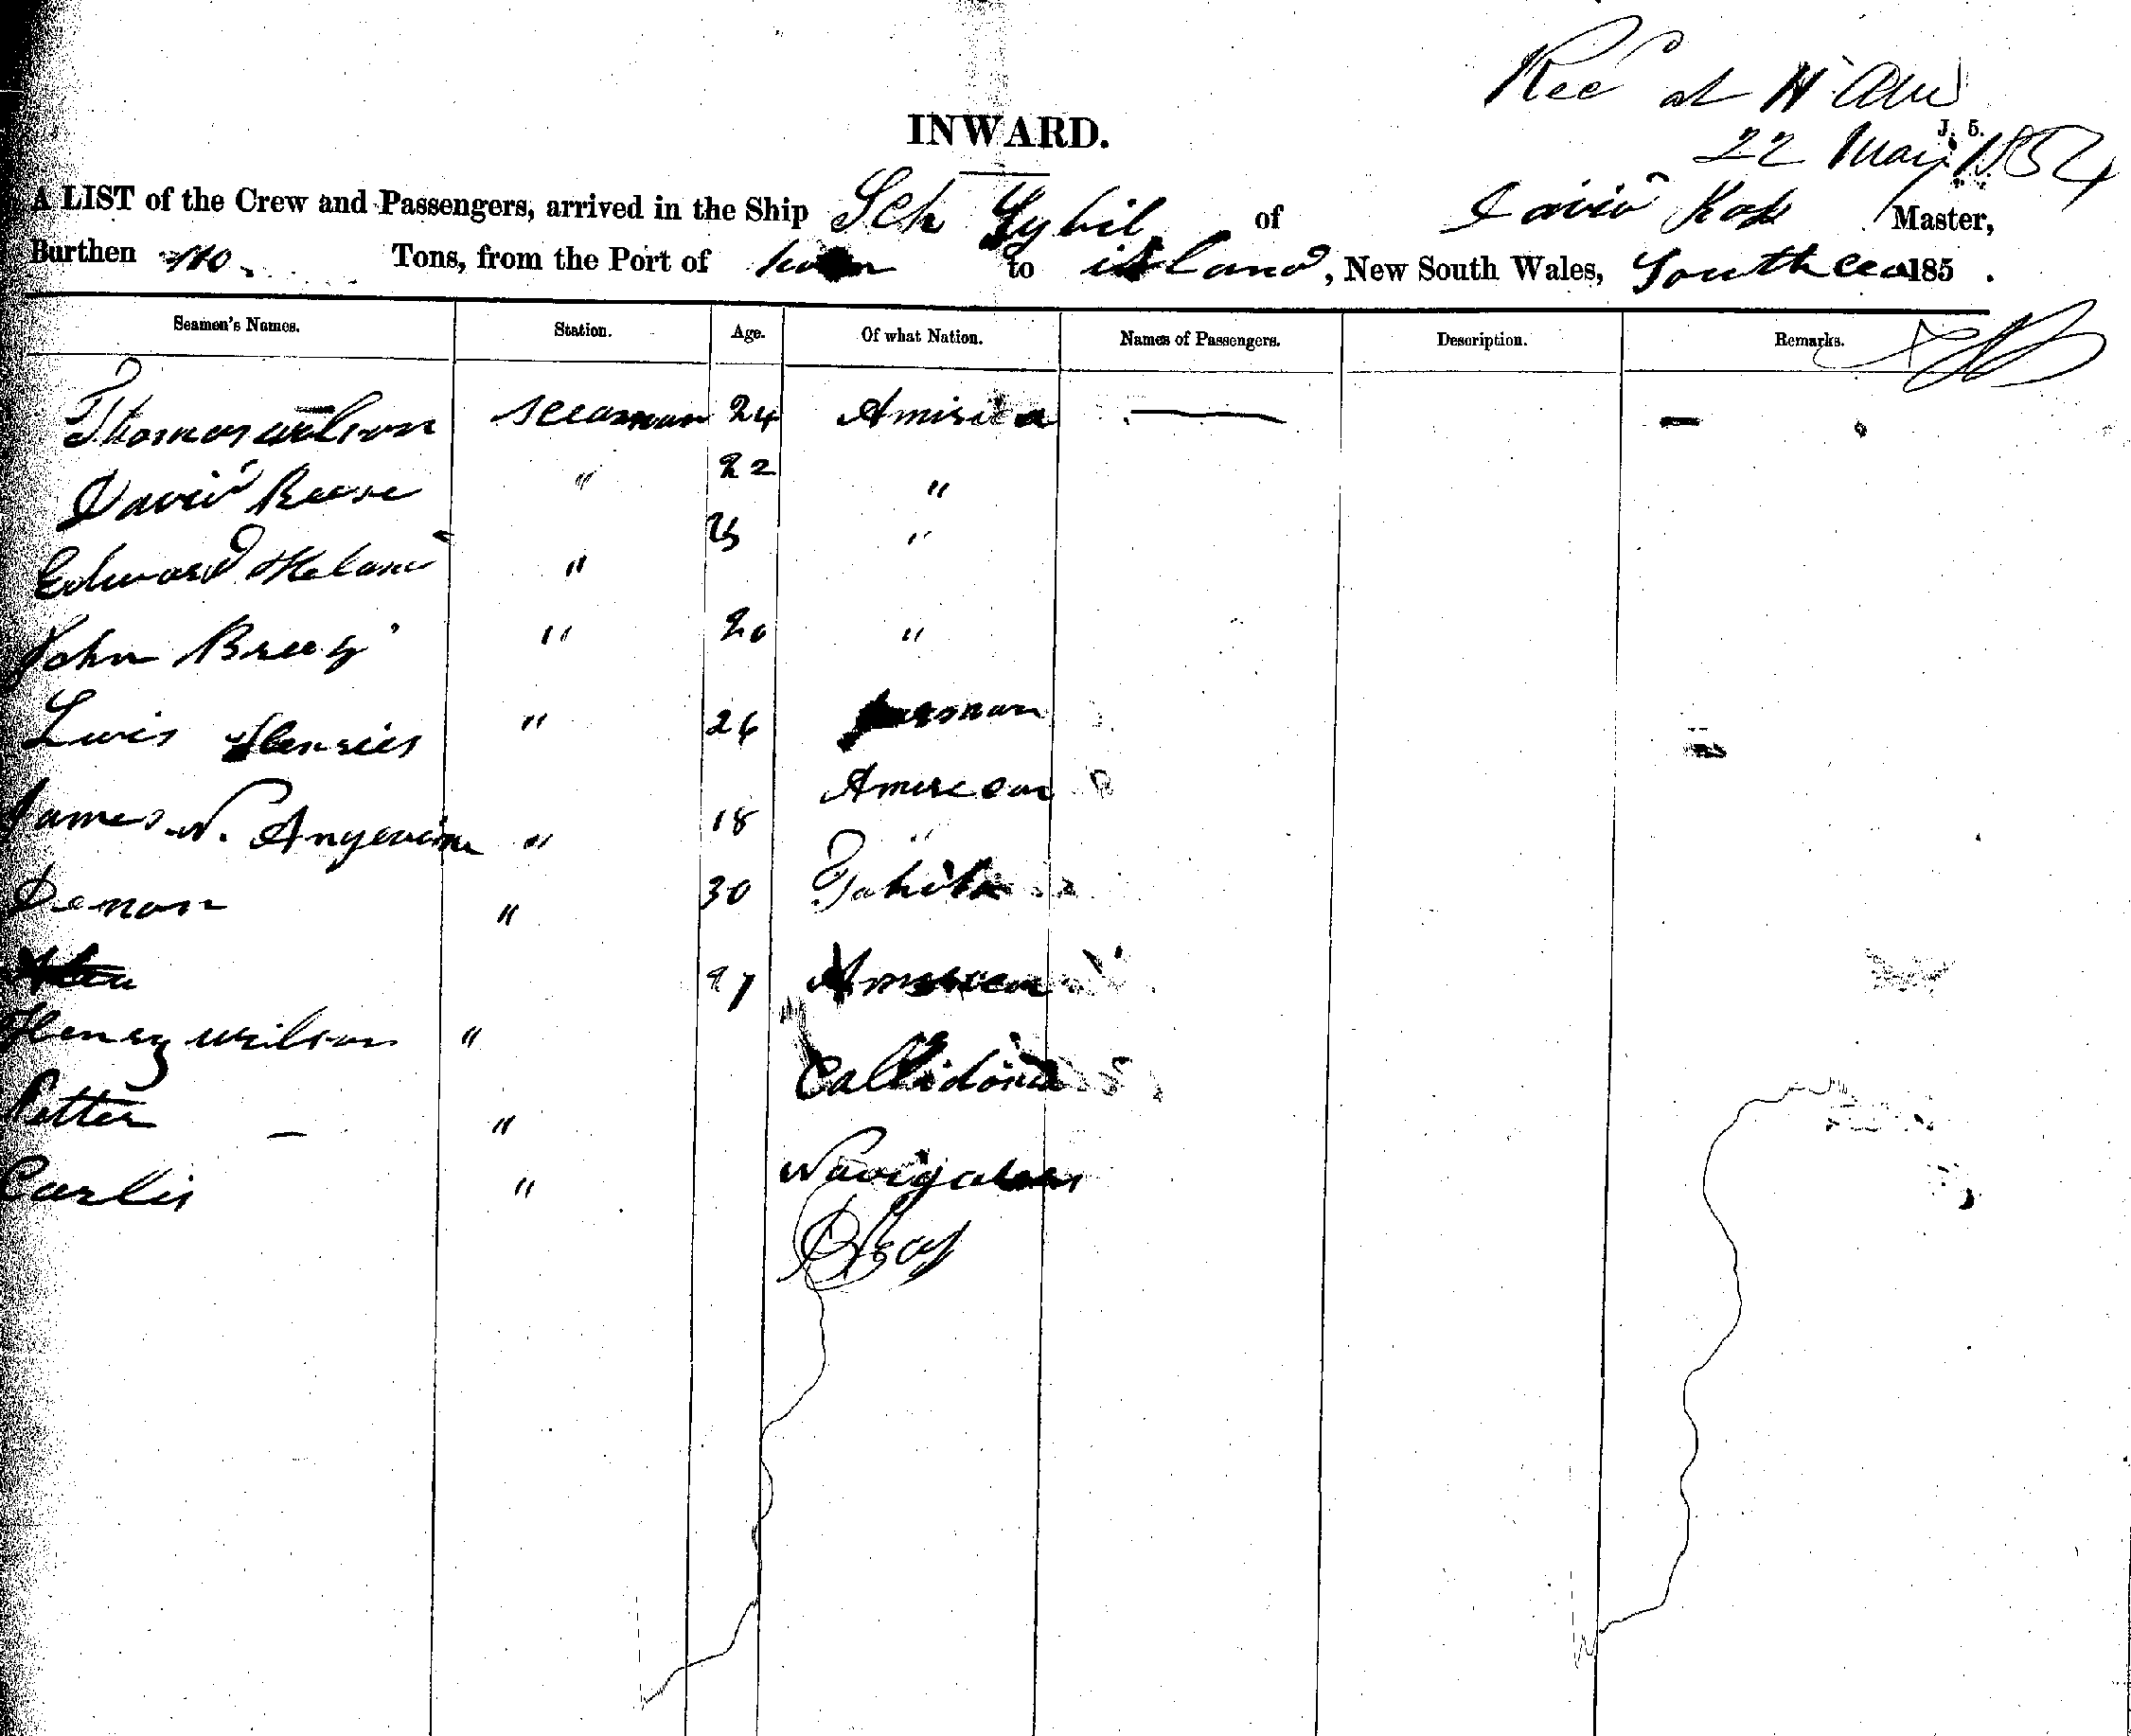 Rec'd at H
22 May 1854
J. 5.
INWARD.
A LIST of the Crew and Passengers, arrived in the Ship Sch Sybil of David Master,
Burthen 110 Tons, from the Port of to island, New South Wales, South Cea 185 .
Seamen's Names. Station. Age. Of what Nation. Names of Passengers. Description. Remarks.
Thomas Wilson Seeaman 24 America
David Reese " 22 "
Edward " 25 "
John " 20 "
Lewis Henries " 26 German
James N. Angevine " 18 American
Demon " 30 Tahita
27 American
Henry Wilson "
Petter — " Callidonia
Carlis " Navigators